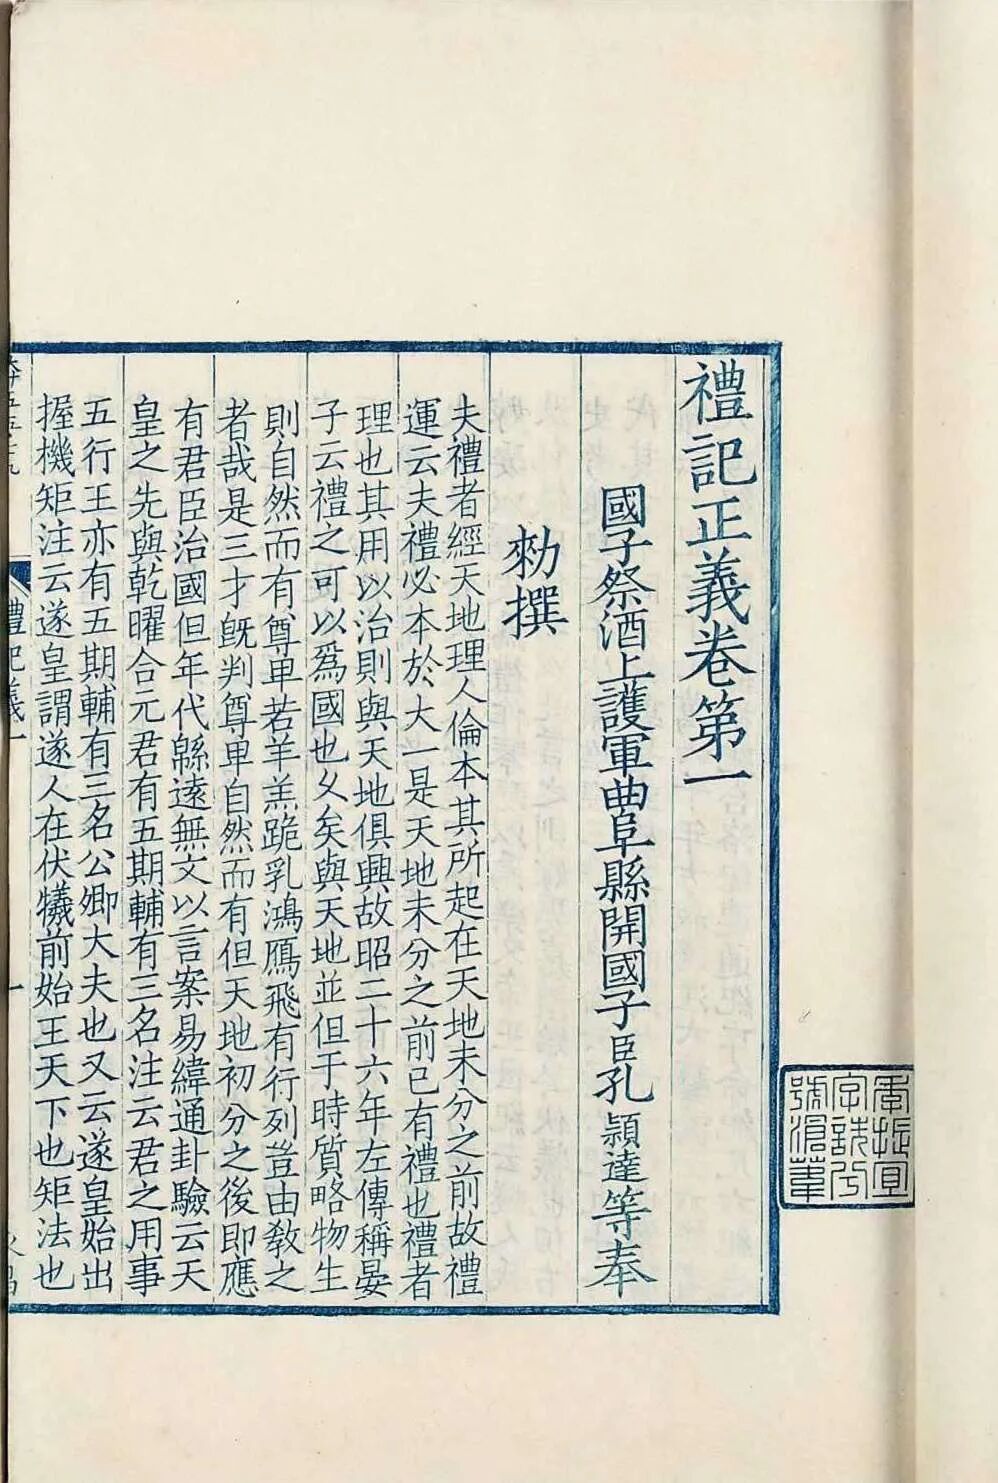 禮記正義卷第一
國子祭酒上護軍曲阜縣開國子臣孔穎達等奉
勑撰
夫禮者經天地理人倫本其所起在天地未分之前故禮
運云夫禮必本於大一是天地未分之前已有禮也禮者
理也其用以治則與天地俱興故昭二十六年左傳稱晏
子云禮之可以爲國也乆矣與天地並但于時質略物生
則自然而有尊卑若羊羔跪乳鴻鴈飛有行列豈由教之
者哉是三才旣判尊卑自然而有但天地初分之後即應
有君臣治國但年代緜遠無文以言案易緯通卦驗云天
皇之先與乾曜合元君有五期輔有三名注云君之用事
五行王亦有五期輔有三名公卿大夫也又云遂皇始出
握機矩注云遂皇謂遂人在伏犧前始王天下也矩法也
禮記義一
一